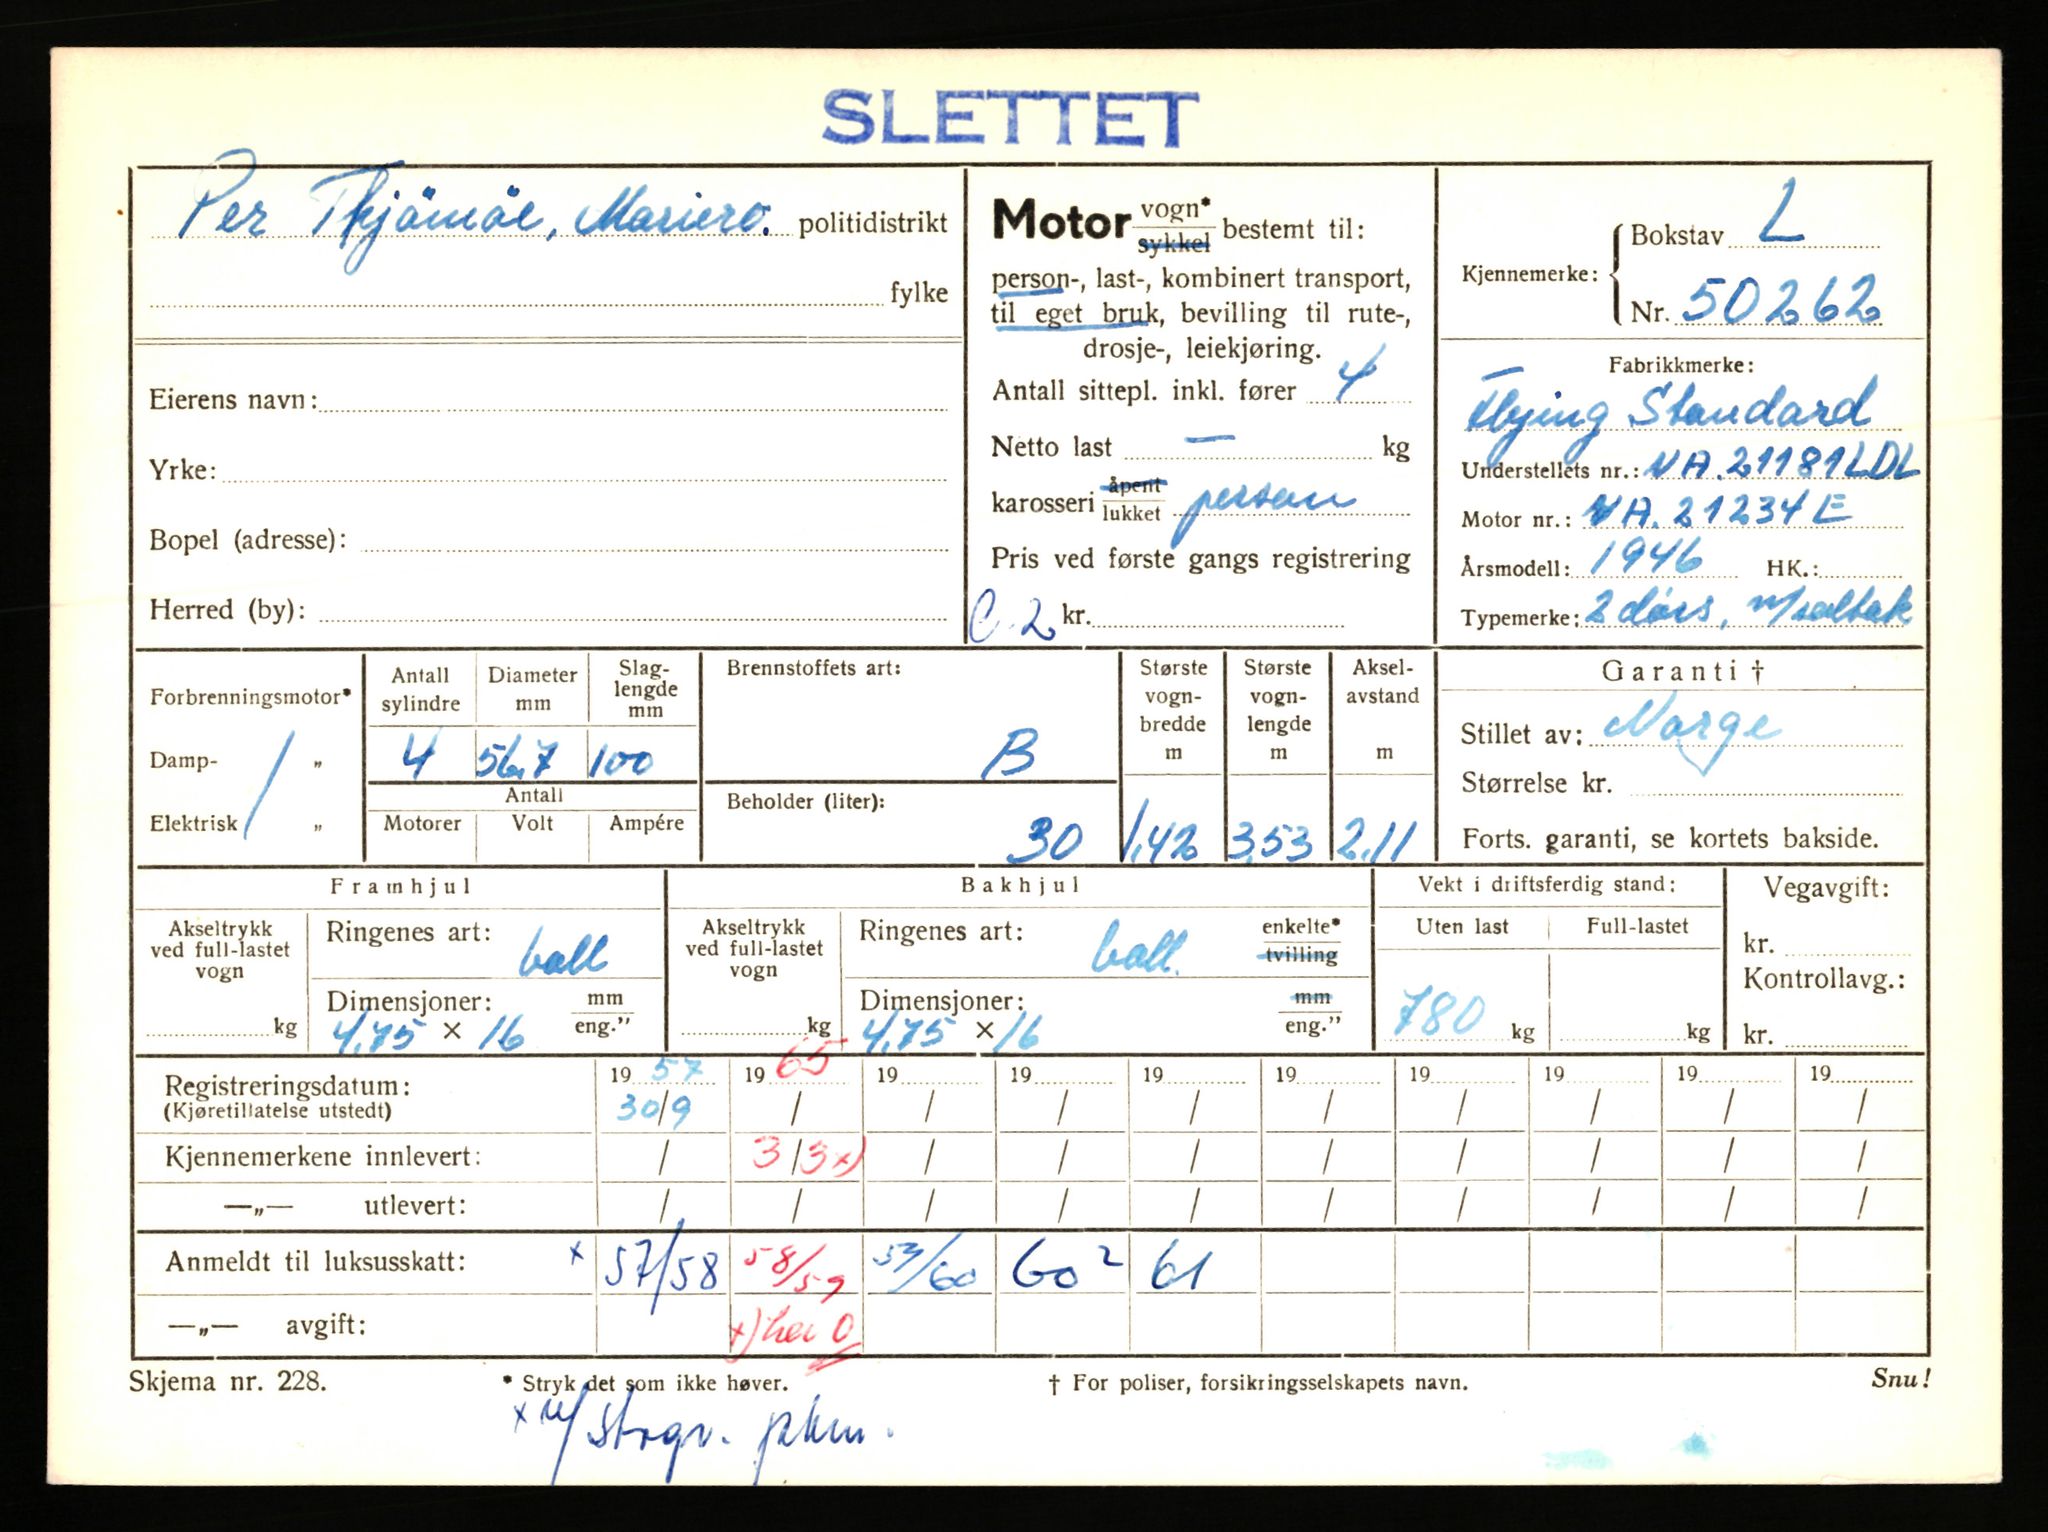 SLETTET
Per Tkjömöe, Mariero. politidistrikt
fylke
Eierens navn:
Yrke:
Bopel (adresse):
Herred (by):
Motor vogn* sykkel bestemt til:
person-, last-, kombinert transport,
til eget bruk, bevilling til rute-,
drosje-, leiekjøring.
Antall sittepl. inkl. fører 4
Netto last — kg
karosseri åpent lukket person
Pris ved første gangs registrering
C. 2 kr.
Kjennemerke: Bokstav L
Nr. 50262
Fabrikkmerke:
Flying Standard
Understellets nr.: NA. 21181LDL
Motor nr.: NA. 21234E
Årsmodell: 1946 HK.:
Typemerke: 2 dørs, m/soltak
Forbrenningsmotor*
Damp- „
Elektrisk „
Antall sylindre
Diameter mm
Slag-lengde mm
4 56,7 100
Antall
Motorer Volt Ampére
Brennstoffets art:
B
Beholder (liter):
30
Største vogn-bredde m
1,42
Største vogn-lengde m
3,53
Aksel-avstand m
2,11
Garanti †
Stillet av: Norge
Størrelse kr.
Forts. garanti, se kortets bakside.
Framhjul
Akseltrykk
ved full-lastet
vogn
kg
Ringenes art: ball
Dimensjoner: mm
4,75 × 16 eng."
Bakhjul
Akseltrykk
ved full-lastet
vogn
kg
Ringenes art: ball. enkelte* tvilling
Dimensjoner: mm
4,75 × 16 eng."
Vekt i driftsferdig stand:
Uten last Full-lastet
780 kg kg
Vegavgift:
kr.
Kontrollavg.:
kr.
Registreringsdatum: 19 57 19 65 19 19 19 19 19 19 19 19
(Kjøretillatelse utstedt) 30/9 / / / / / / / / /
Kjennemerkene innlevert: / 3/3 x) / / / / / / / /
—„— utlevert: / / / / / / / / / /
Anmeldt til luksusskatt: x 57/58 58/59 59/60 60² 61
—„— avgift: x) her 0
Skjema nr. 228. * Stryk det som ikke høver. † For poliser, forsikringsselskapets navn. Snu!
x